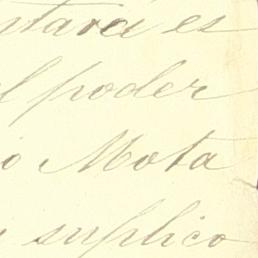 ntará es
el poder
io Mota
suplico